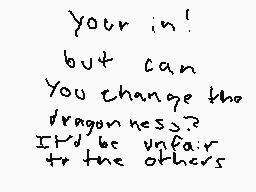 your in!
but can
you change the
dragonness?
It'd be unfair
to the others